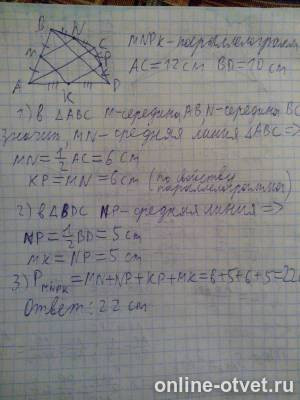 B N
M C P
A K D
MNPK - параллелограмм
AC=12см BD=10см
1) в ΔABC M-середина AB, N-середина BC
Значит, MN-средняя линия ΔABC =>
MN=½AC=6см
KP=MN=6см (по свойству параллелограмма)
2) в ΔBDC NP-средняя линия =>
NP=½BD=5см
MK=NP=5см
3) P MNPK=MN+NP+KP+MK=6+5+6+5=22
Ответ: 22 см
online-otvet.ru